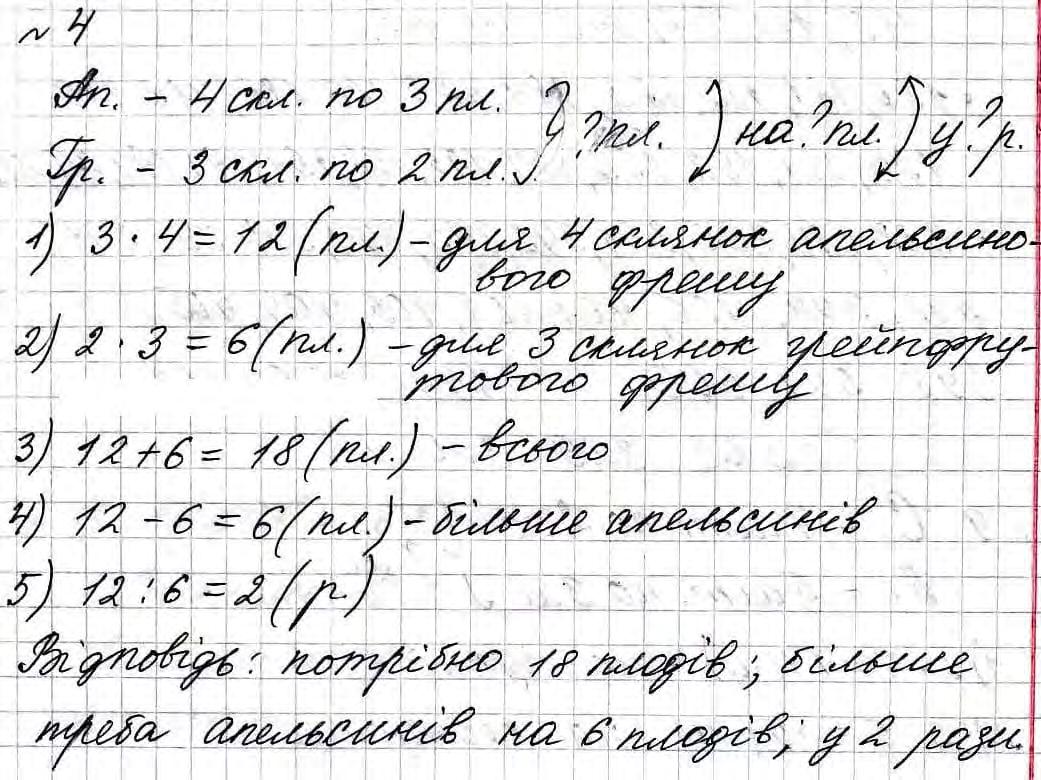 № 4
Ап. – 4 скл. по 3 пл. } ? пл. ) на ? пл. ) у ? р.
Гр. – 3 скл. по 2 пл.
1) 3 · 4 = 12 (пл.) – для 4 склянок апельсино-
вого фрешу
2) 2 · 3 = 6 (пл.) – для 3 склянок грейпфру-
тового фрешу
3) 12 + 6 = 18 (пл.) – всього
4) 12 – 6 = 6 (пл.) – більше апельсинів
5) 12 : 6 = 2 (р.)
Відповідь: потрібно 18 плодів; більше
треба апельсинів на 6 плодів; у 2 рази.